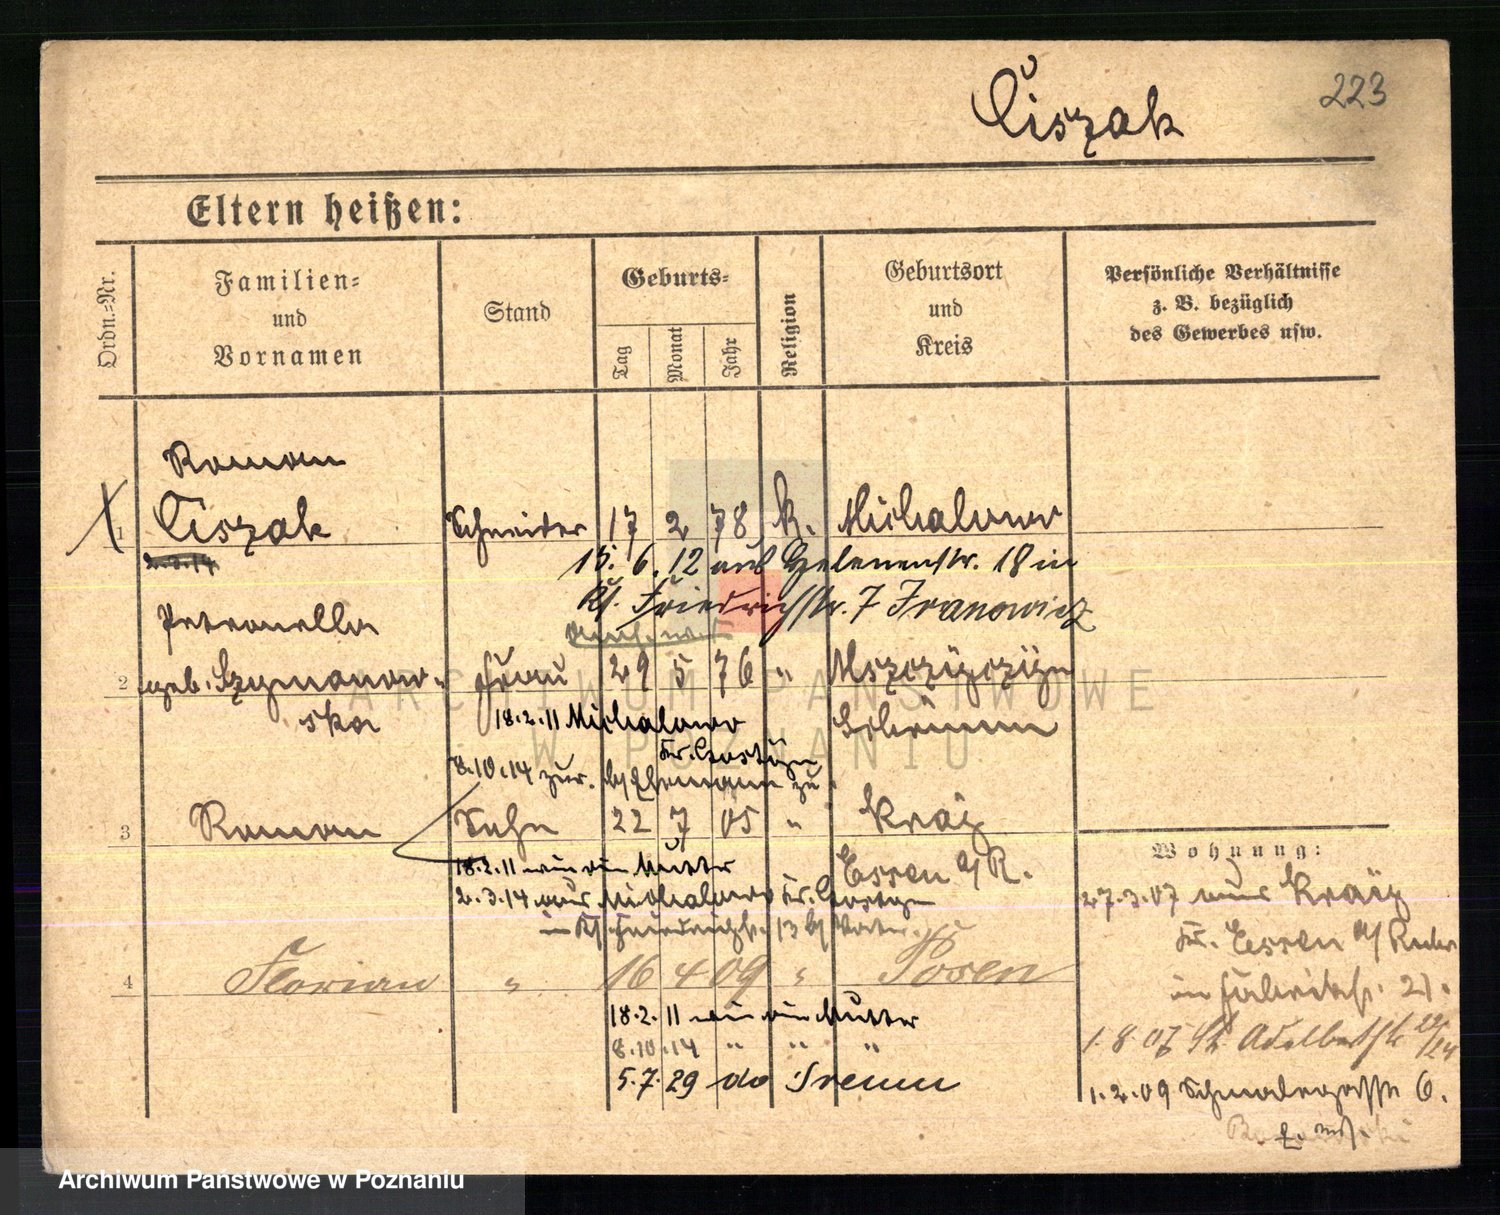 223
Ciszak
Eltern heißen:
Ordn.-Nr.
Familien-
und
Vornamen
Stand
Geburts-
Tag
Monat
Jahr
Religion
Geburtsort
und
Kreis
Persönliche Verhältnisse
z. B. bezüglich
des Gewerbes usw.
Roman
1 Ciszak Schneider 17 2 78 k. Michalowo
2.3.14
15.6.12 aus Helenenstr. 18 in
Friedrichstr. 7 Iranowicz
Petronella
2 geb. Szymanow- Frau 29 5 76 " Mszczyczyn
ska
Schrimm
18.2.11 Michalowo
Kr. Gostyn
8.10.14 zur. Ehemann zu
3 Roman Sohn 22 7 05 " Kray
Essen a/R.
18.2.11 wie die Mutter
2.3.14 aus Michalowo Kr. Gostyn
in Friedrichstr. 13 b/ Vater
4 Florian " 16 4 09 " Posen
18.2.11 wie die Mutter
8.10.14 " " "
5.7.29 do Srem
Wohnung:
27.3.07 aus Kray
Kr. Essen a/Ruhr
in Fabrikstr. 21.
1.8.07 St. Adalbertstr. 23/24
1.2.09 Schmalegasse 6.
ARCHIWUM PAŃSTWOWE
W POZNANIU
Archiwum Państwowe w Poznaniu